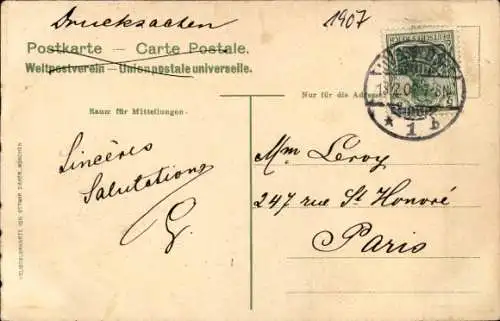 Drucksachen
1907
Postkarte — Carte Postale.
Weltpostverein — Union postale universelle.
Raum für Mitteilungen.
Nur für die Adresse
* 1 b
Sincères
Salutations
G.
Mm Leroy
247 rue St Honoré
Paris